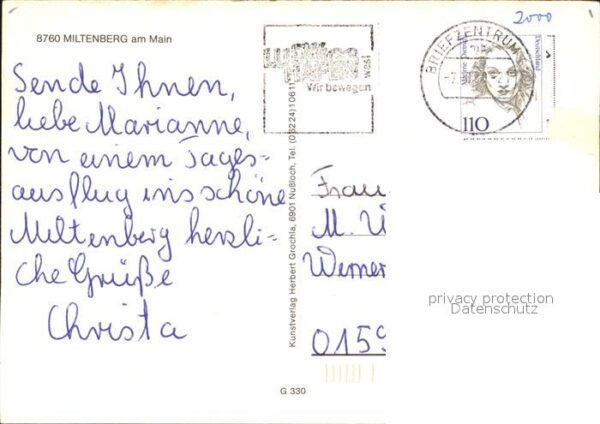 8760 MILTENBERG am Main
Sende Ihnen,
liebe Marianne,
von einem Tages-
ausflug ins schöne
Miltenberg herzli-
che Grüße
Christa
Kunstverlag Herbert Grochla, 6901 Nußloch, Tel. (06224) 10611
G 330
2000
Wir bewegen
BRIEFZENTRUM
Deutschland
110
Frau
M. Ü
Werner
0159
privacy protection
Datenschutz